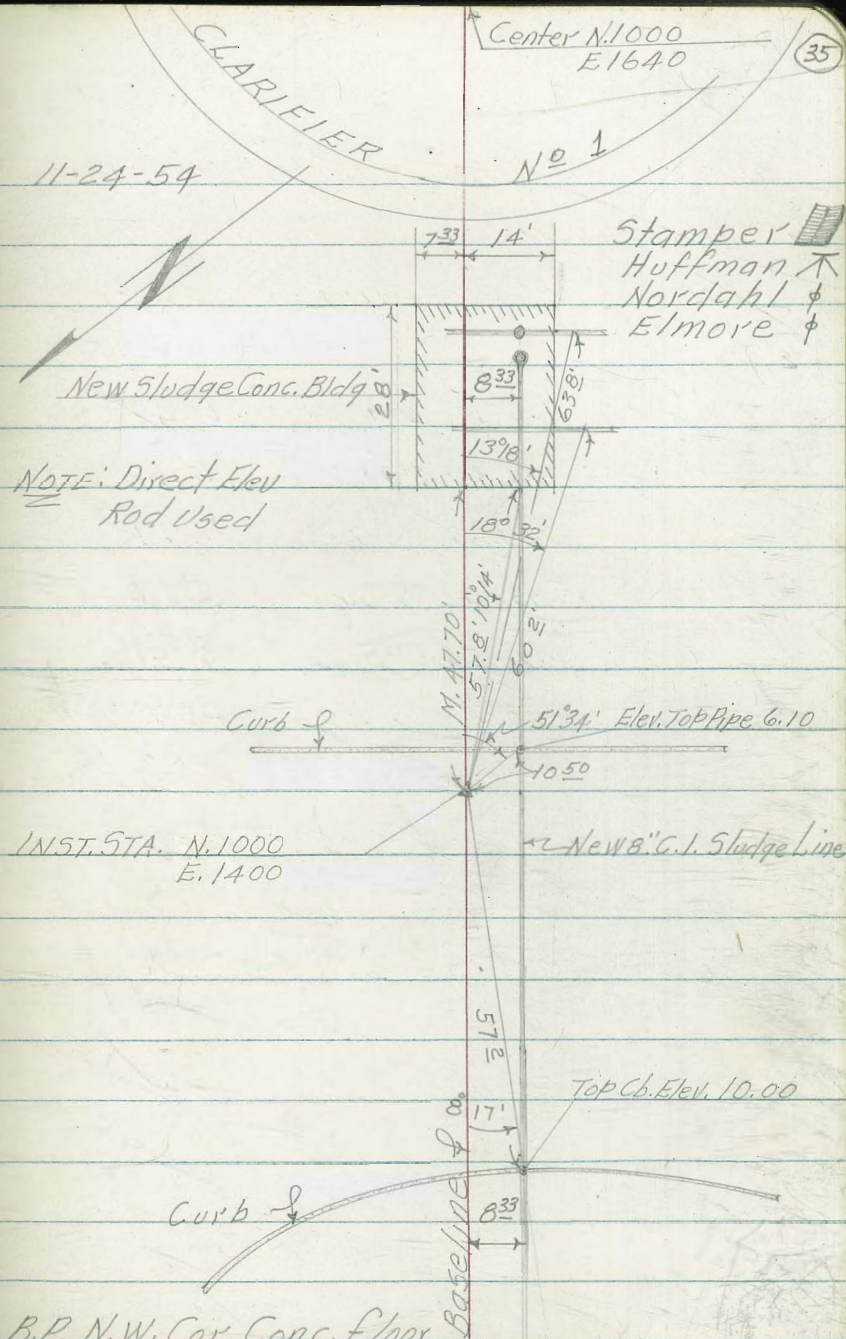 Center N.1000
E1640
35
CLARIFIER
Nº 1
11-24-54
7 33
14'
Stamper
Huffman
Nordahl
Elmore
N
28'
New Sludge Conc. Bldg
8 33
63 8'
13°18'
NOTE: Direct Elev
Rod Used
18° 32'
10°14'
57.8'
60 2'
M. 47.70'
Curb
51°34'
Elev. Top Pipe 6.10
10 50
INST. STA. N.1000
E. 1400
New 8" C.I. Sludge Line
57 2
Top Cb. Elev. 10.00
17'
Curb
8 33
Baseline
B.P. N.W. Cor Conc. floor